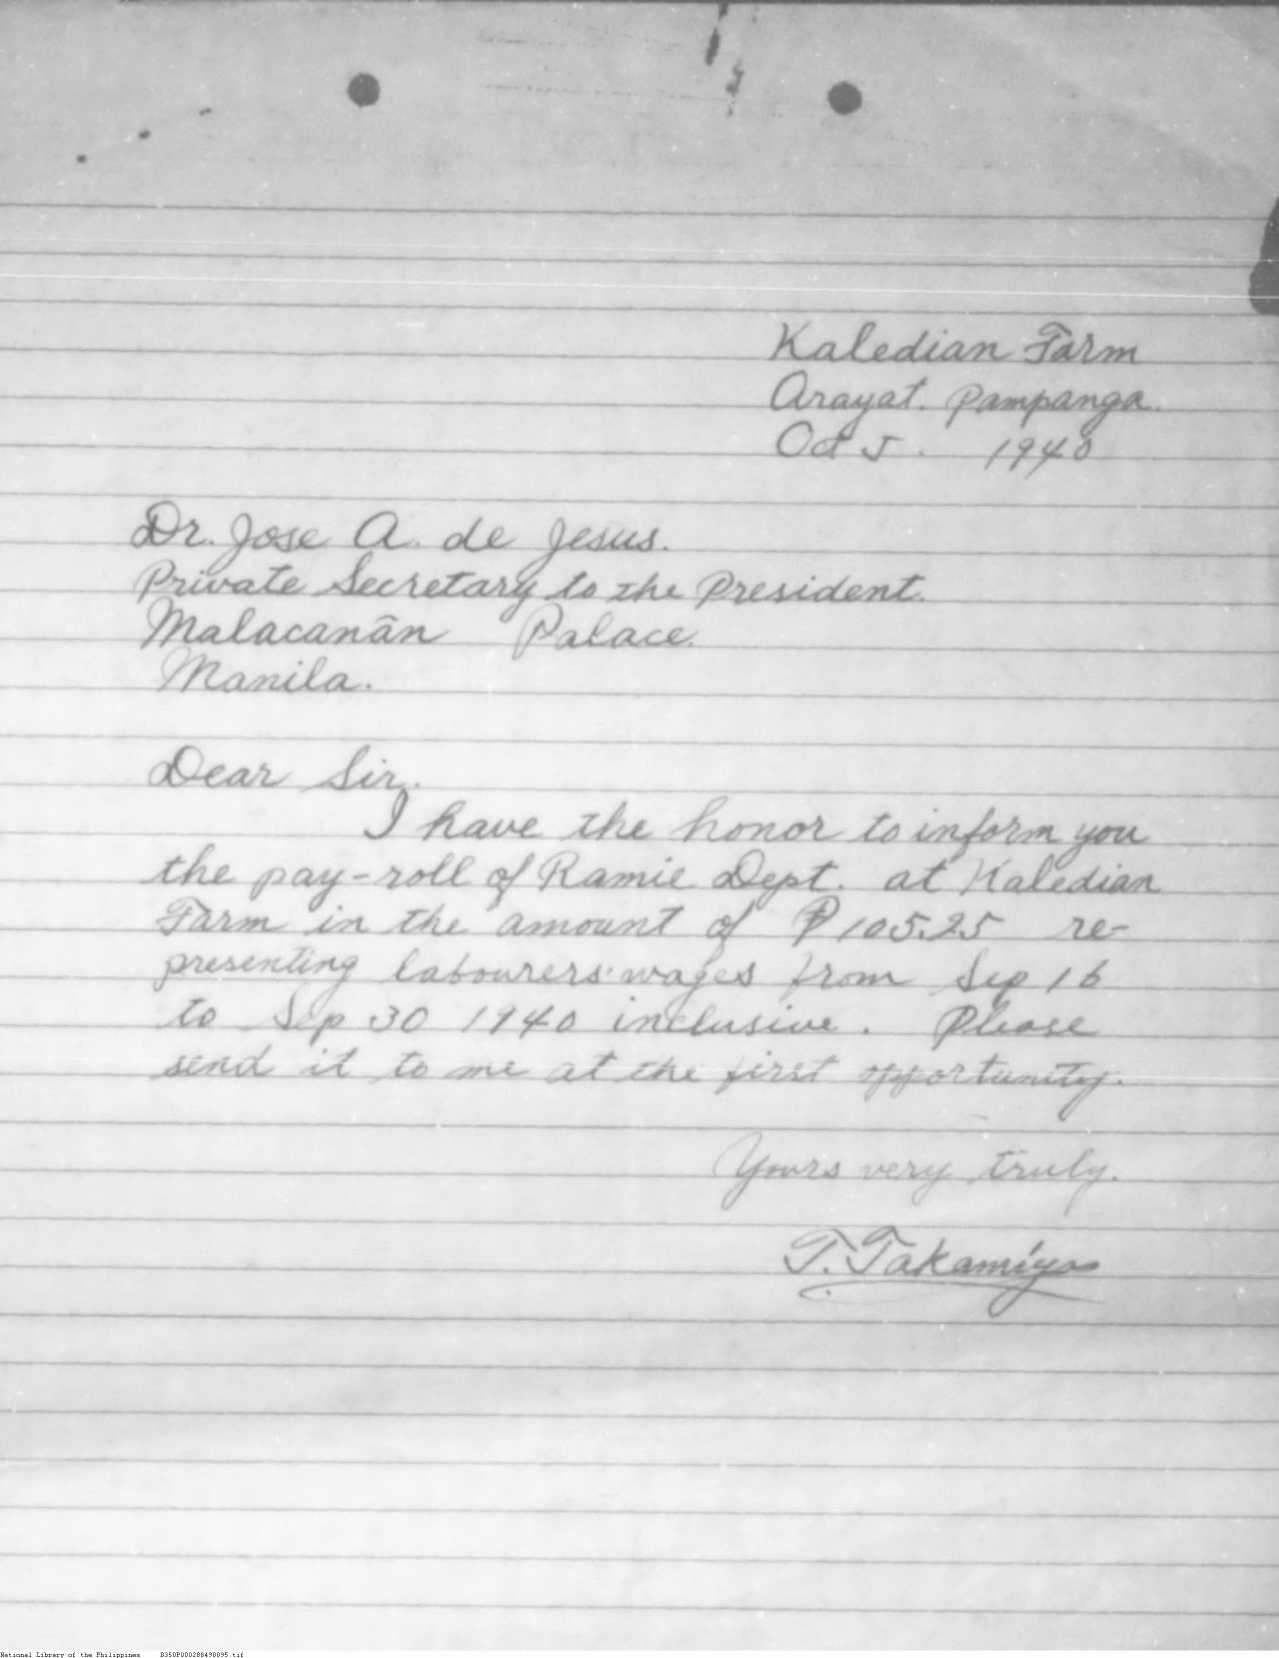 Kaledian Farm
Arayat. Pampanga.
Oct 5. 1940
Dr. Jose A. de Jesus.
Private Secretary to the President.
Malacanãn Palace.
Manila.
Dear Sir.
I have the honor to inform you
the pay-roll of Ramie Dept. at Kaledian
Farm in the amount of ₱105.25 re-
presenting labourers' wages from Sep 16
to Sep 30 1940 inclusive. Please
send it to me at the first opportunity.
Yours very truly.
T. Takamiya
National Library of the Philippines B350P000288490095.tif